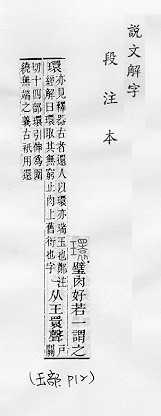 說文解字
段注本
環璧肉好若一謂之
環
亦見釋器古者還人以環亦瑞玉也鄭注
經解曰環取其無窮止肉上舊衍也字
从王睘聲
戶關
切十四部環引伸爲圍
繞無端之義古衹用還
(玉部 P12)